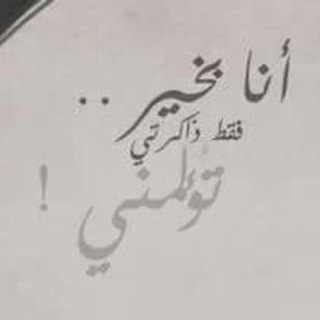 أنا بخير ..
فقط ذاكرتي
تؤلمني !